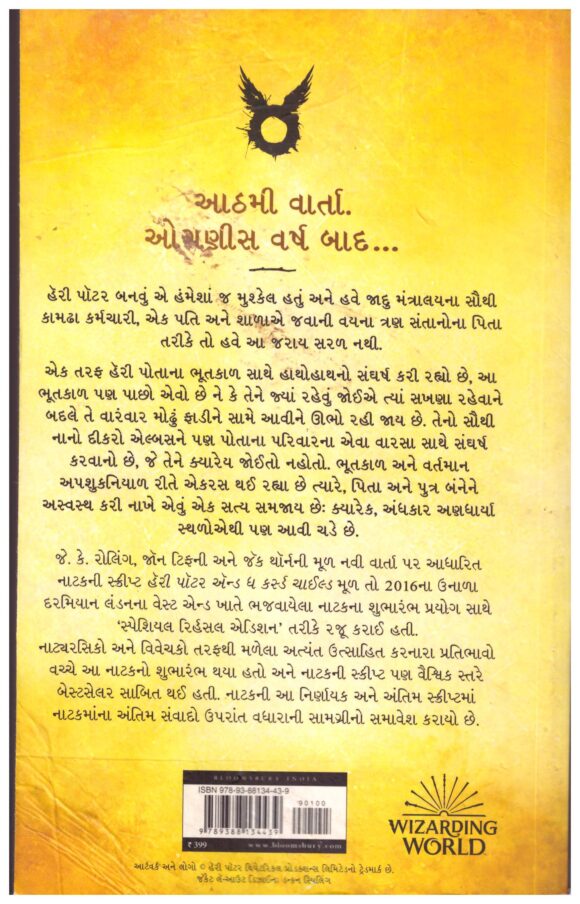 આઠમી વાર્તા.
ઓગણીસ વર્ષ બાદ...
હૅરી પૉટર બનવું એ હંમેશાં જ મુશ્કેલ હતું અને હવે જાદુ મંત્રાલયના સૌથી
કામઢા કર્મચારી, એક પતિ અને શાળાએ જવાની વયના ત્રણ સંતાનોના પિતા
તરીકે તો હવે આ જરાય સરળ નથી.
એક તરફ હૅરી પોતાના ભૂતકાળ સાથે હાથોહાથનો સંઘર્ષ કરી રહ્યો છે, આ
ભૂતકાળ પણ પાછો એવો છે ને કે તેને જ્યાં રહેવું જોઈએ ત્યાં સખણા રહેવાને
બદલે તે વારંવાર મોઢું ફાડીને સામે આવીને ઊભો રહી જાય છે. તેનો સૌથી
નાનો દીકરો ઍલ્બસને પણ પોતાના પરિવારના એવા વારસા સાથે સંઘર્ષ
કરવાનો છે, જે તેને ક્યારેય જોઈતો નહોતો. ભૂતકાળ અને વર્તમાન
અપશુકનિયાળ રીતે એકરસ થઈ રહ્યા છે ત્યારે, પિતા અને પુત્ર બંનેને
અસ્વસ્થ કરી નાખે એવું એક સત્ય સમજાય છેઃ ક્યારેક, અંધકાર અણધાર્યા
સ્થળોએથી પણ આવી ચડે છે.
જે. કે. રોલિંગ, જૉન ટિફની અને જૅક થૉર્નની મૂળ નવી વાર્તા પર આધારિત
નાટકની સ્ક્રીપ્ટ હૅરી પૉટર ઍન્ડ ધ કર્સ્ડ ચાઈલ્ડ મૂળ તો 2016ના ઉનાળા
દરમિયાન લંડનના વેસ્ટ એન્ડ ખાતે ભજવાયેલા નાટકના શુભારંભ પ્રયોગ સાથે
‘સ્પેશિયલ રિર્હસલ એડિશન’ તરીકે રજૂ કરાઈ હતી.
નાટ્યરસિકો અને વિવેચકો તરફથી મળેલા અત્યંત ઉત્સાહિત કરનારા પ્રતિભાવો
વચ્ચે આ નાટકનો શુભારંભ થયા હતો અને નાટકની સ્ક્રીપ્ટ પણ વૈશ્વિક સ્તરે
બેસ્ટસેલર સાબિત થઈ હતી. નાટકની આ નિર્ણાયક અને અંતિમ સ્ક્રીપ્ટમાં
નાટકમાંના અંતિમ સંવાદો ઉપરાંત વધારાની સામગ્રીનો સમાવેશ કરાયો છે.
BLOOMSBURY INDIA
ISBN 978-93-88134-43-9
90100
9 789388 134439
₹ 399
www.bloomsbury.com
WIZARDING
WORLD
આર્ટવર્ક અને લોગો © હૅરી પૉટર થિયેટ્રિકલ પ્રોડક્શન્સ લિમિટેડનો ટ્રેડમાર્ક છે.
જૅકેટ લે-આઉટ ડિઝાઈનઃ ડન્કન સ્પિલિંગ